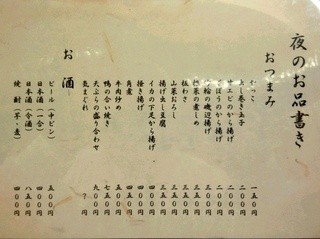 夜のお品書き
おつまみ
おしんこ 一五〇円
だし巻き玉子 二〇〇円
甘エビのから揚げ 二〇〇円
ごぼうのから揚げ 二〇〇円
竹輪の磯辺揚げ 三五〇円
野菜の煮しめ 三五〇円
板わさ 三五〇円
山菜おろし 三五〇円
揚げ出し豆腐 三五〇円
イカの下足から揚げ 四〇〇円
掻き揚げ 四〇〇円
角煮 四五〇円
牛肉炒め 五〇〇円
鴨の合い焼き 七五〇円
天ぷらの盛り合わせ 九〇〇円
気まぐれ ？円
お酒
ビール（中ビン） 五〇〇円
日本酒（一合） 四〇〇円
日本酒（二合） 八五〇円
焼酎（芋・麦） 四〇〇円